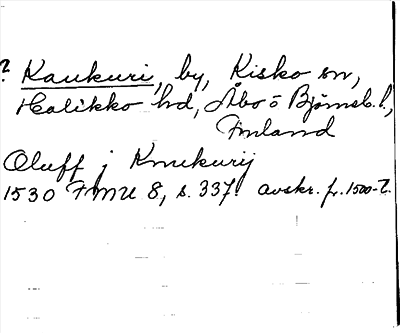 ? Kaukuri, by, Kisko sn,
Halikko hd, Åbo o Björneb. l.,
Finland
Oluff j Knukurij
1530 FMU 8, s. 337. avskr. fr. 1500-t.